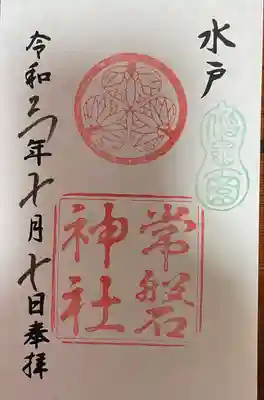 水戸
常磐
神社
令和元年十月十日奉拝